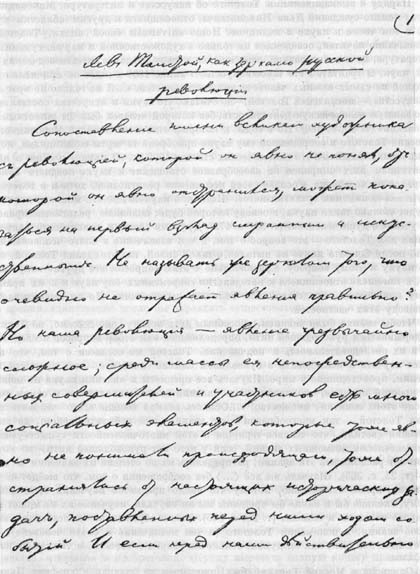 1
Лев Толстой, как зеркало русской
революции
Сопоставление имени великого художника
с революцией, которой он явно не понял, от
которой он явно отстранился, может пока-
заться на первый взгляд странным и искус-
ственным. Не называть же зеркалом того, что
очевидно не отражает явления правильно?
Но наша революция — явление чрезвычайно
сложное; среди массы ея непосредствен-
ных совершителей и участников есть много
социальных элементов, которые тоже яв-
но не понимали происходящего, тоже от-
странялись от настоящих исторических за-
дач, поставленных перед ними ходом со-
бытий. И если перед нами действительно